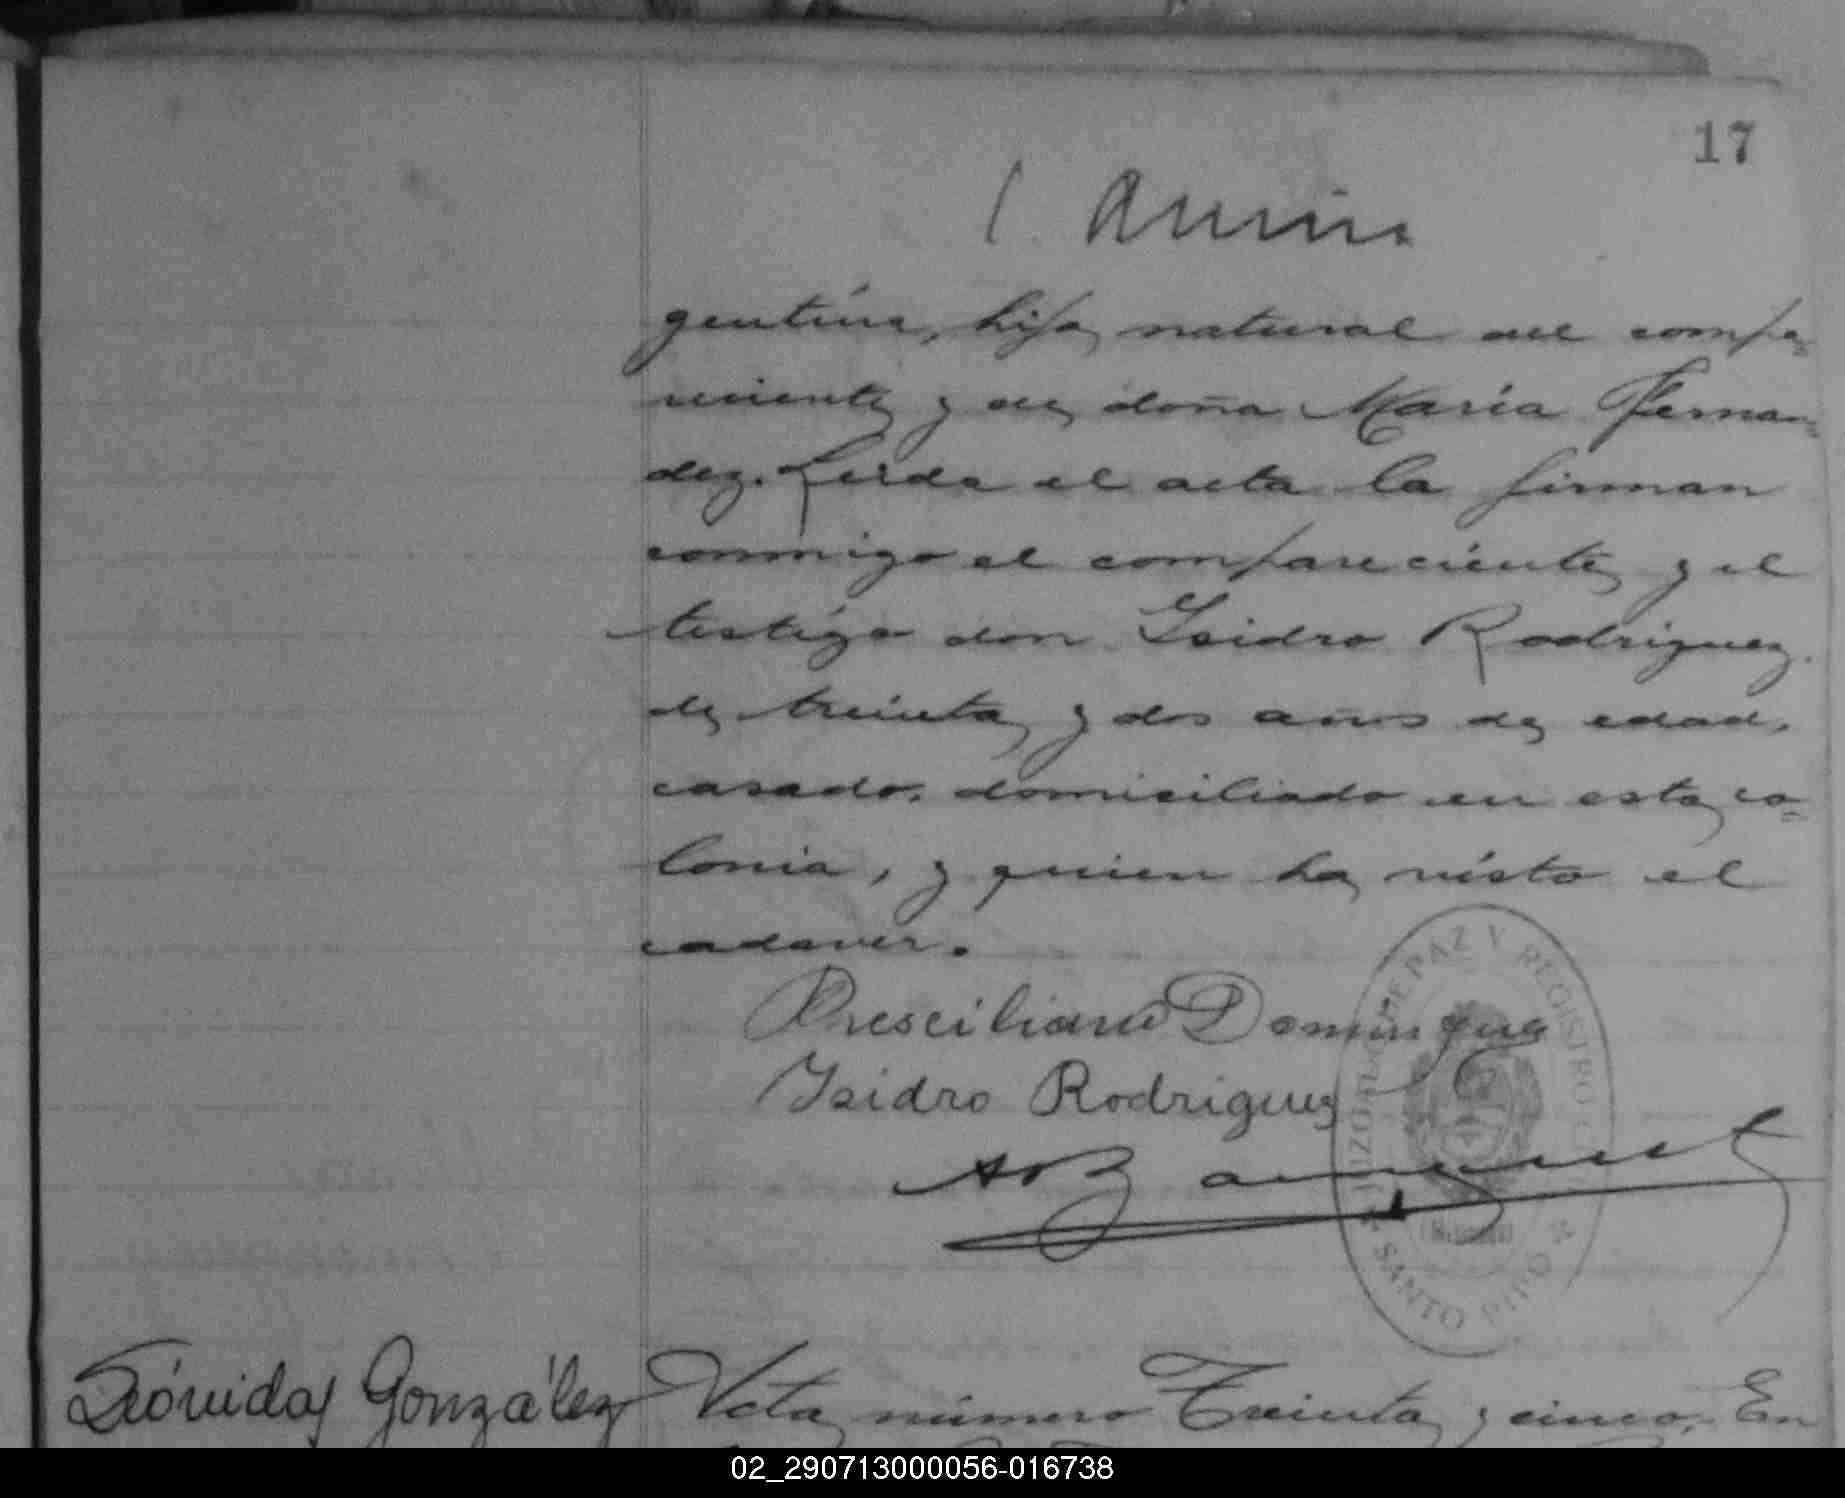 17
gentina, hija natural del compa=
reciente y de doña María Fernan=
dez. Leida el acta la firman
conmigo el compareciente y el
testigo don Isidro Rodriguez.
de treinta y dos años de edad,
casado, domiciliado en esta co=
lonia, y quien ha visto el
cadaver.
Presciliano Dominguez
Isidro Rodriguez
DE PAZ Y REGISTRO
SANTO PIPO
Leónidas González Acta número Treinta y cinco. En
02_290713000056-016738